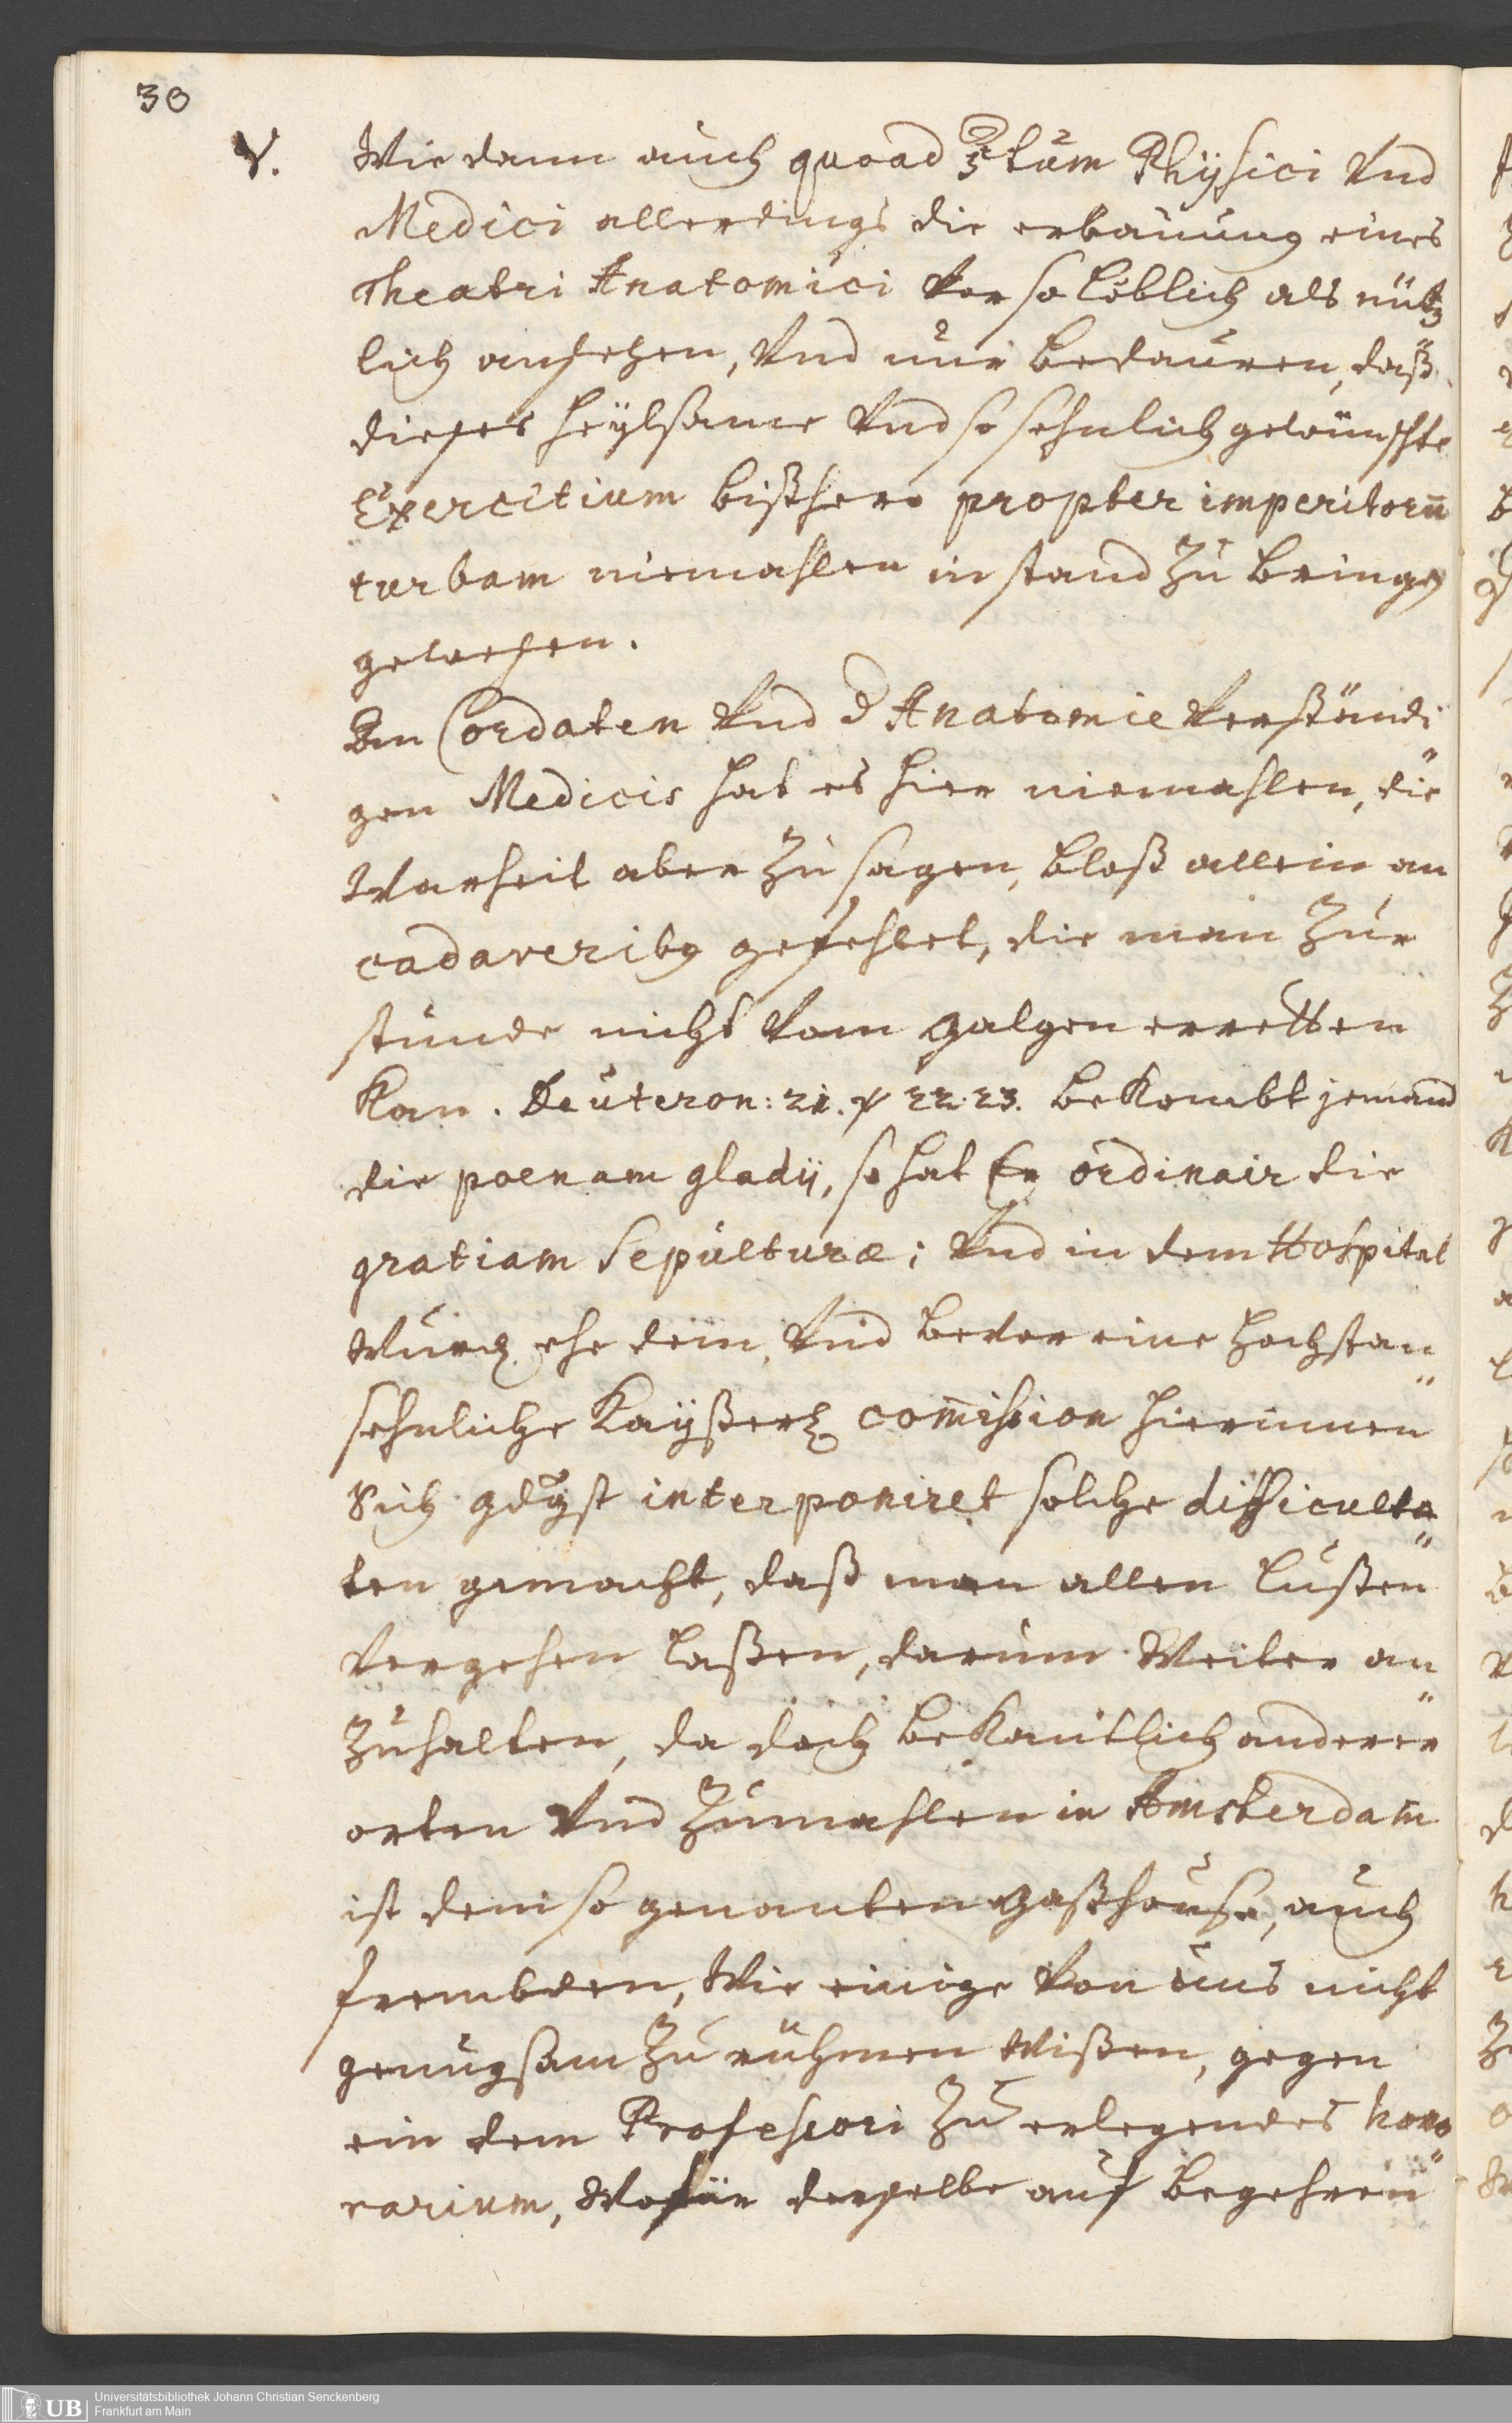 30
V. Wie dann auch quoad 5tum Physici Vnd
Medici allerdings die erbauung eines
Theatri Anatomici Vor so löblich als nütz
lich ansehen, Vnd nur bedauren, daß
dieses heylsame Vnd so sehnlich gewünschte
Exercitium bißhero propter imperitorū
turbam niemahlen in stand zu bringen
gewesen.
An Cordaten Vnd d Anatomie Verständi
gen Medicis hat es hier niemahlen, die
Warheit aber zu sagen, bloß allein an
cadaveribq gefehlet, die man zur
stunde nicht Vom galgen erretten
kan. Deuteron: 21. ℣ 22. 23. bekombt jemand
die poenam gladij, so hat Er ordinair die
gratiam Sepulturæ; Vnd in dem Hospital
wurd ehe dem, Vnd bevor eine Hochstan„
sehnliche Kayßerl com̅ission hierinnen
Sich gdgst interponiret solche difficulta„
ten gemacht, daß man allen lusten
Vergehen laßen, darum Weiter an„
zuhalten, da doch bekantlich anderer
orten Vnd zumahlen in Amsterdam
ist dem so genanten gasthause, auch
frembden, Wie einige Von uns nicht
genugsam zu rühmen Wißen, gegen
ein dem Professori zu erlegendes hono„
rarium, Wofür derselbe auf begehren
Universitätsbibliothek Johann Christian Senckenberg
UB Frankfurt am Main